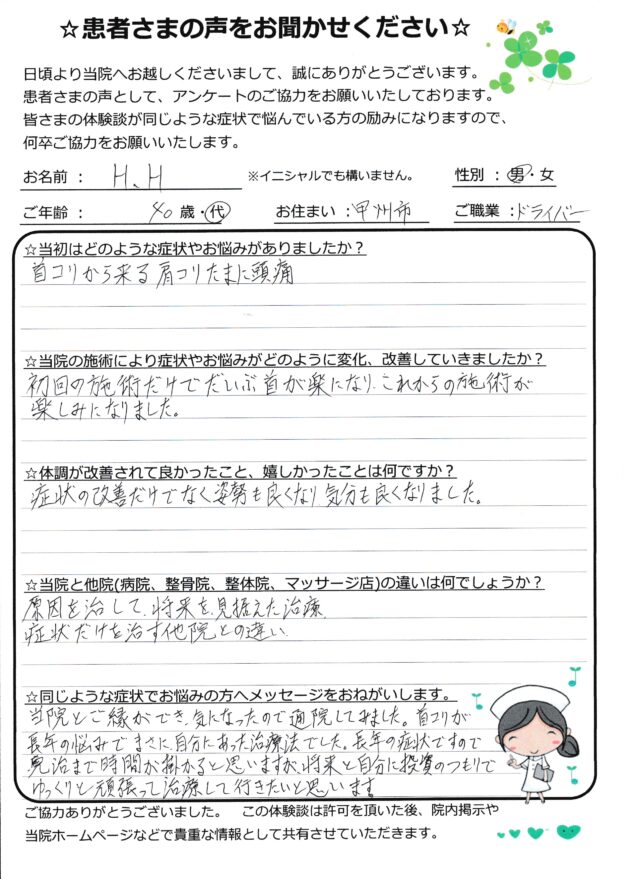 ☆患者さまの声をお聞かせください☆
日頃より当院へお越しくださいまして、誠にありがとうございます。
患者さまの声として、アンケートのご協力をお願いいたしております。
皆さまの体験談が同じような症状で悩んでいる方の励みになりますので、
何卒ご協力をお願いいたします。
お名前 : H.H ※イニシャルでも構いません。 性別 : 男・女
ご年齢 : 40 歳・代 お住まい : 甲州市 ご職業 : ドライバー
☆当初はどのような症状やお悩みがありましたか？
首コリから来る肩コリたまに頭痛
☆当院の施術により症状やお悩みがどのように変化、改善していきましたか？
初回の施術だけでだいぶ首が楽になり、これからの施術が
楽しみになりました。
☆体調が改善されて良かったこと、嬉しかったことは何ですか？
症状の改善だけでなく姿勢も良くなり気分も良くなりました。
☆当院と他院(病院、整骨院、整体院、マッサージ店)の違いは何でしょうか？
原因を治して、将来を見据えた治療、
症状だけを治す他院との違い
☆同じような症状でお悩みの方へメッセージをおねがいします。
当院とご縁ができ、気になったので通院してみました。首コリが
長年の悩みでまさに、自分にあった治療法でした。長年の症状ですので
完治まで時間が掛かると思いますが、将来と自分に投資のつもりで
ゆっくりと頑張って治療して行きたいと思います
ご協力ありがとうございました。 この体験談は許可を頂いた後、院内掲示や
当院ホームページなどで貴重な情報として共有させていただきます。